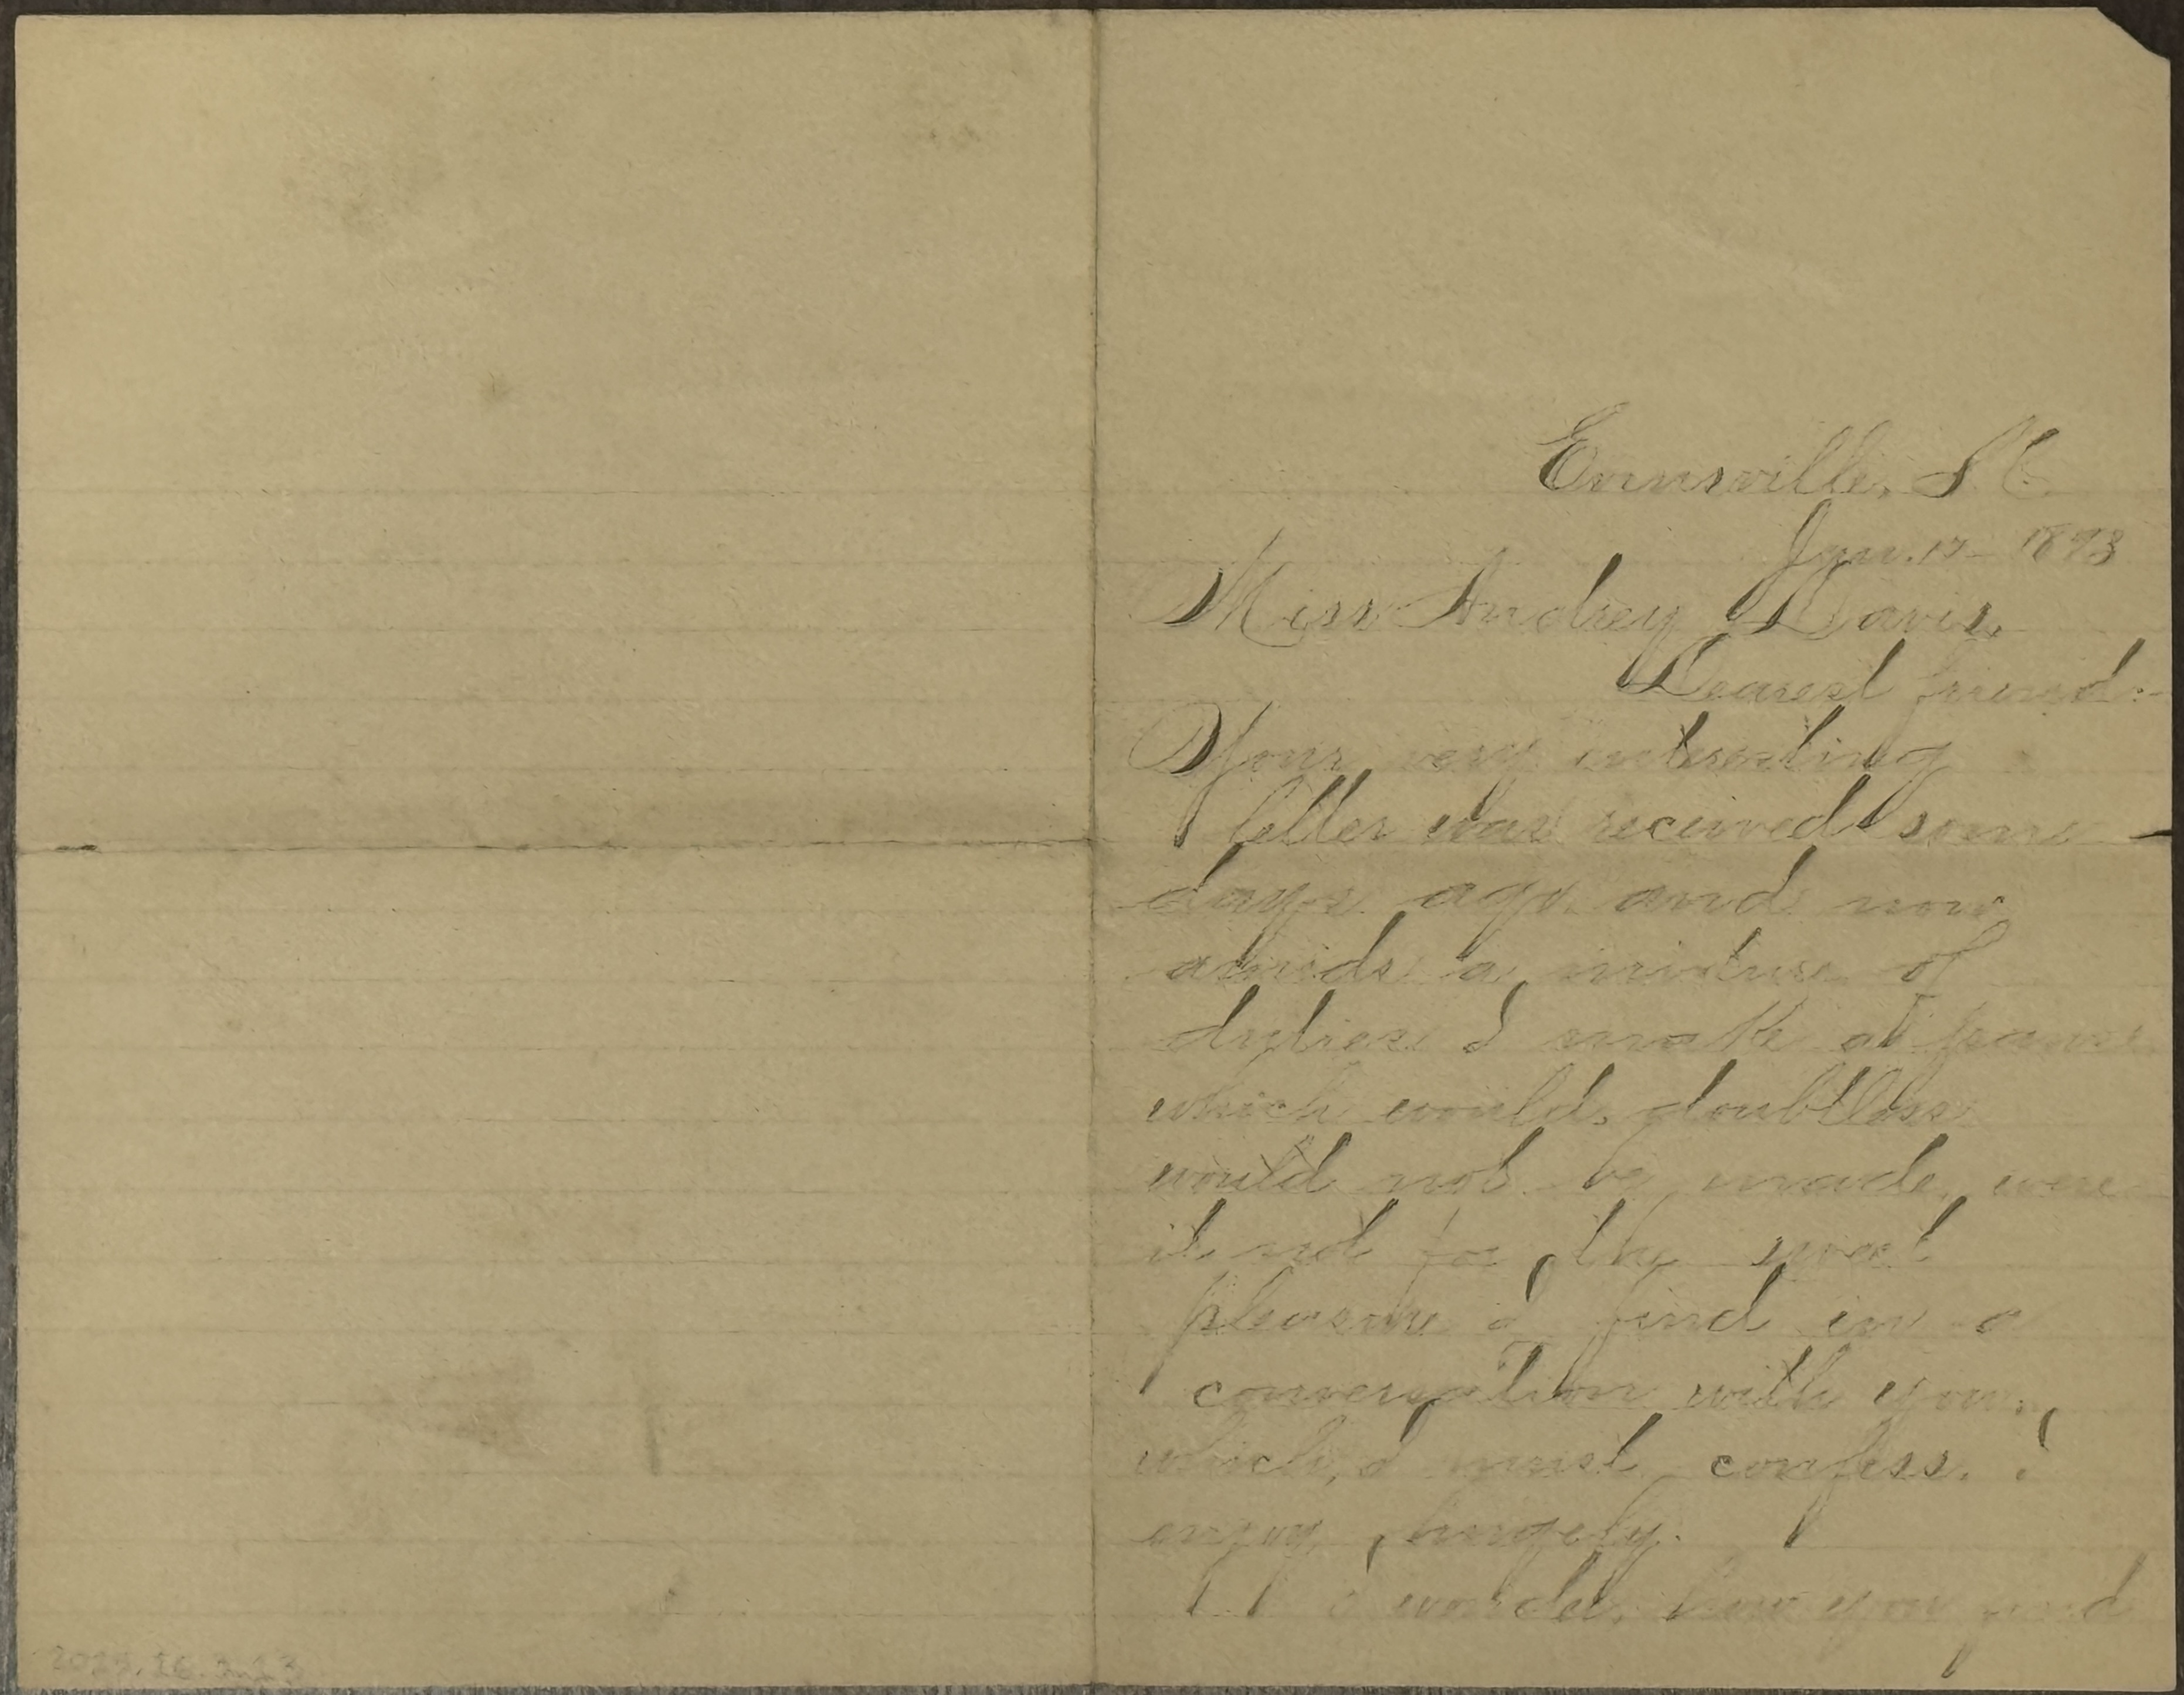 Evinsville, S.C.
Jan. 17 - 1893
Miss Audrey Davis,
Dearest friend:-
Your very interesting
letter was received some
days ago and now
amids a mixture of
duties I make a pause
which would, doubtless
would not be made, were
it not for the sweet
pleasure I find in a
conversation with you,
which, I must confess, I
enjoy hugely.
I wonder, how you and